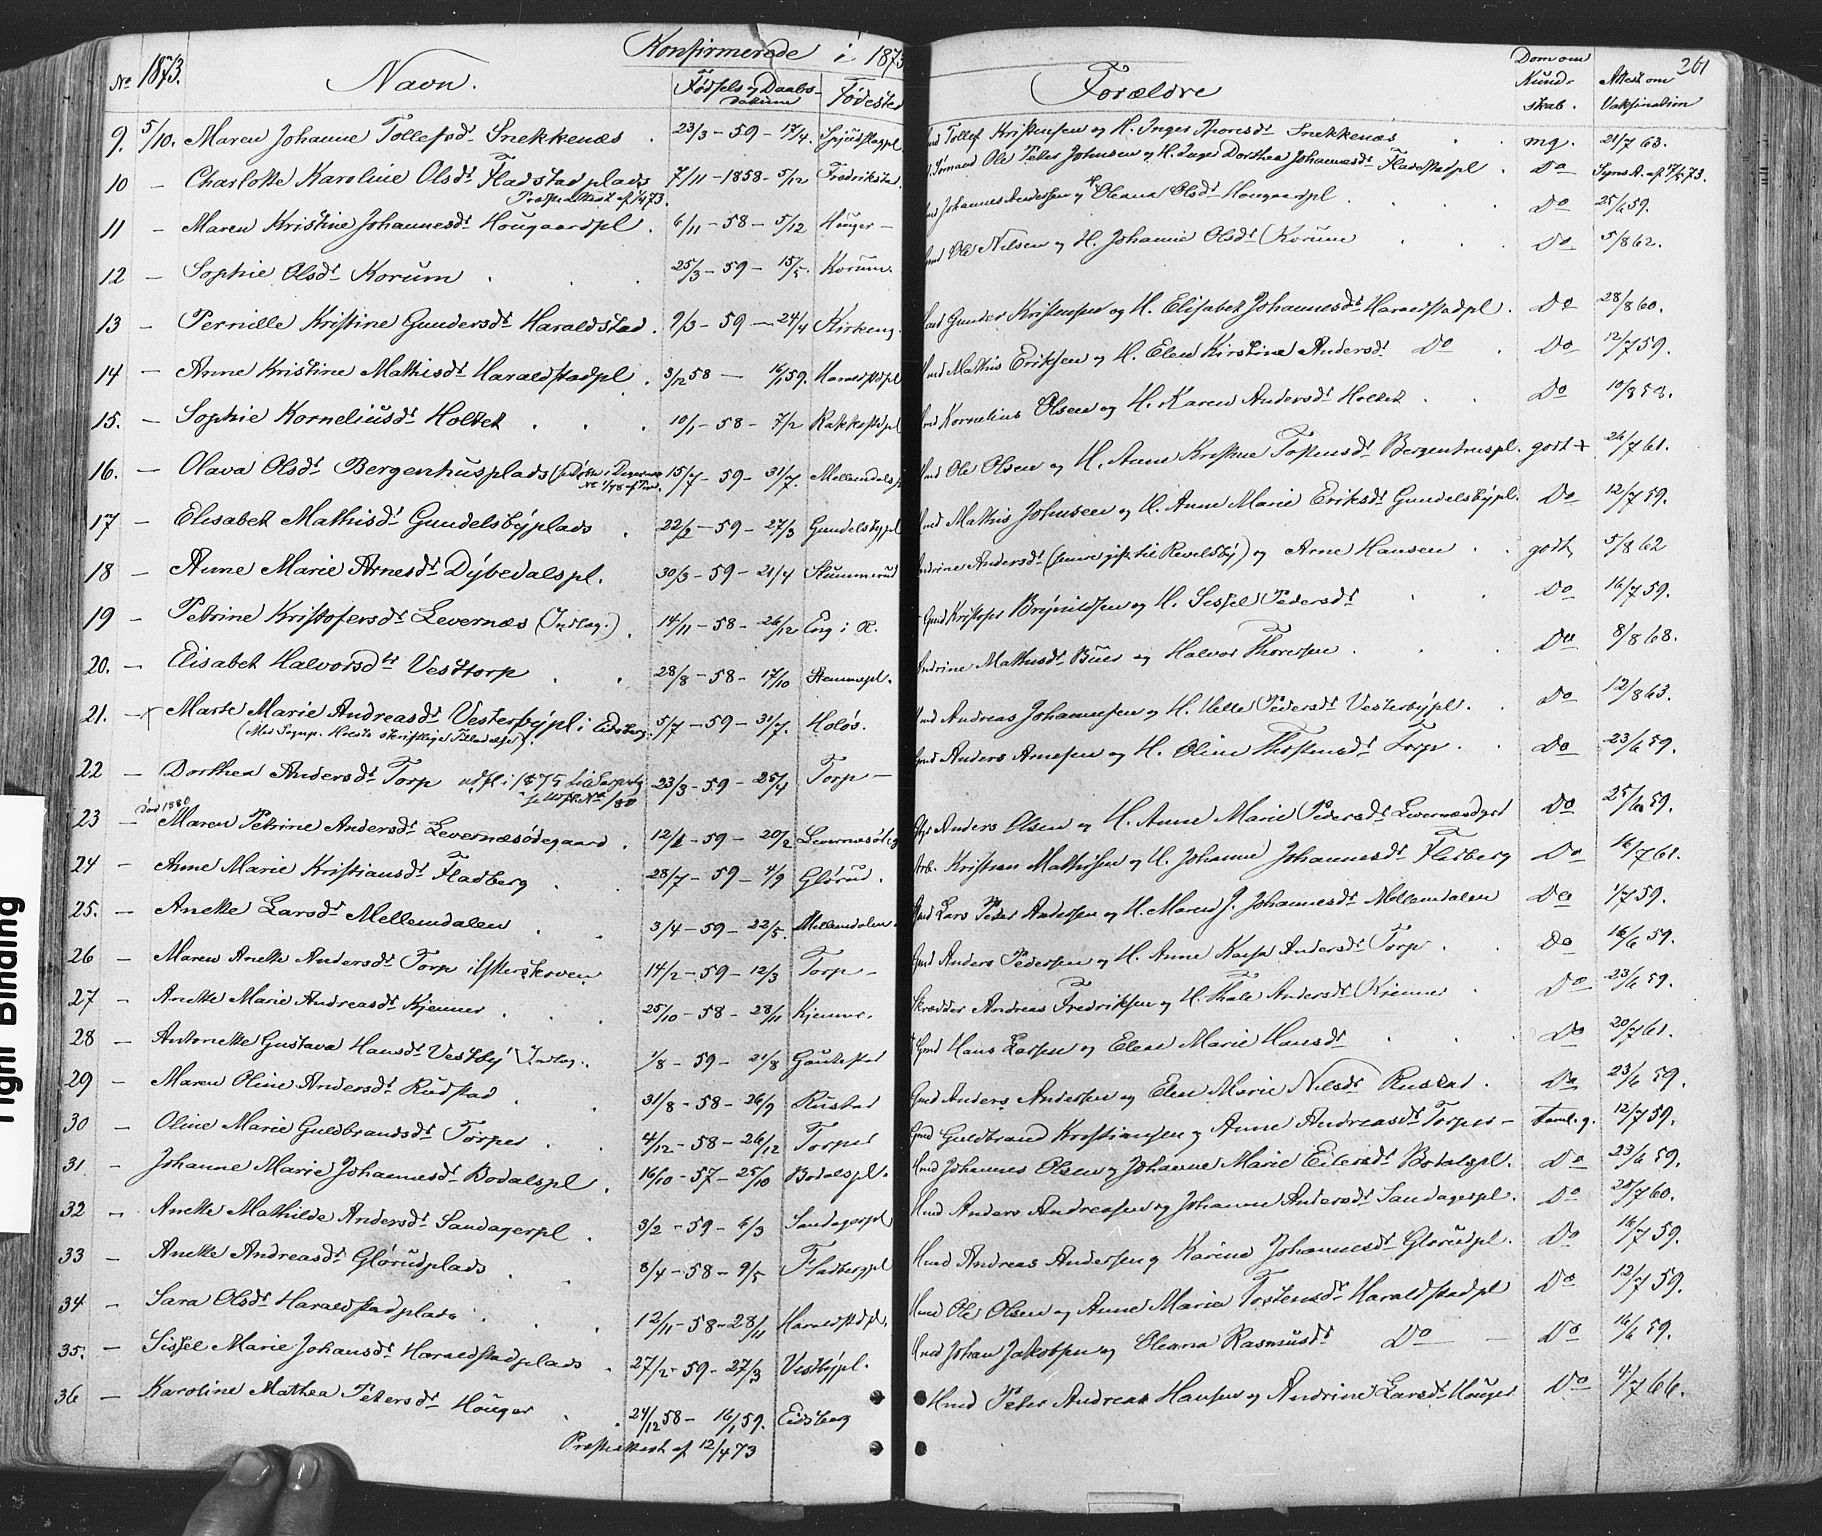 Konfirmerede i 1873
261
No 1873. Navn. Fødsels og Daabs- datum Fødested Forældre Dom om Kund- skab. Attest om Vaksination
9. 5/10. Maren Johanne Tollefsdr Snekkenæs 23/3 - 59 - 17/4. Tollef Kristensen og H. Inger Thoresdr Snekkenæs mg. 21/7 63.
10 - Charlotte Karoline Olsdr Fladstadplads 7/11 - 1858 - 5/12 Fredrikstad. Ole Peter Johnsen og H. Inger Dorthea Johannesdr Fladstadpl. Do
11 - Maren Kristine Johannesdr Hougaardpl. 6/11 - 58 - 5/12 Houger - Johannes Andersen og H. Oleana Olsdr Hougaardpl Do 25/6 59.
12 - Sophie Olsdr Korum 25/3 - 59 - 15/5. Korum. Ole Nilsen og H. Johanne Olsdr Korum Do 5/8 62.
13 - Pernille Kristine Gundersdr Haraldstad. 9/3 - 59 - 24/4 Kirkeng. Gunder Kristensen og H. Elisabet Johannesdr Haraldstadpl. Do 28/8 60.
14 - Anne Kristine Mathisdr Haraldstadpl. 3/12 58 - 16/1 59. Haraldstdpl Mathis Eriksen og H. Elen Kirstine Andersdr Do Do 12/7 59.
15. - Sophie Korneliusdr Holtet 10/1 - 58 - 7/2 Rakkestdpl Kornelius Olsen og H. Karen Andersdr Holtet Do 10/8 58.
16. - Olava Olsdr Bergenhusplads 15/7 - 59 - 31/7. Mellemdalspl Ole Olsen og H. Anne Kristine Bergenhuspl. godt + 26/7 61.
17 - Elisabet Mathisdr Gundelsbyplads 22/2 - 59 - 27/3 Gundelsbypl Mathis Johnsen og H. Anne Marie Eriksdr Gundelsbypl. Do 12/7 59.
18 - Anne Marie Arnesdr Dybedalspl. 30/3 - 59 - 21/4 Andrine Andersdr og Arne Hansen godt 5/8 62
19 - Petrine Kristofersdr Levernæs (Indlag.) 14/11 - 58 - 26/12 Eng i R. Gmd Kristofer Brynildsen og H. Sissel Pedersdr Do 16/7 59.
20. - Elisabet Halvorsdtr Vesttorp 28/8 - 58 - 17/10 Stemmepl. Andrine Mathisdr Buer og Halvor Thoresen Do 8/8 68.
21. - x Marte Marie Andreasdr Vesterbypl i Eidsberg. 5/7 - 59 - 31/7. Holøs. Andreas Johannesen og H. Helle Pedersdr Vesterbypl. Do 12/8 63.
(Med Sogn.pr. skriftlige Tilladelse).
22 - Dorthea Andersdr Torp 23/3 - 59 - 25/4 Torp - Gmd Anders Arnesen og H. Oline Thostensdr Torp. Do 23/6 59.
Død 1880
23 - Maren Petrine Andersdr Levernæsødegaard. 12/1 - 59 - 20/2 Anders Olsen og H. Anne Marie Pedersdr Do 25/6 59.
24 - Anne Marie Kristiansdr Fladberg 28/7 - 59 - 4/9 Glørud. Arb. Kristian Mathisen og H. Johanne Johannesdr Fladberg Do 16/7 61.
25. - Anette Larsdr Mellemdalen 3/4 - 59 - 22/5. Mellemdalen Gmd Lars Peter Andersen og H. Maren J. Johannesdr Mellemdalen Do 1/7 59.
26 - Maren Anette Andersdr Torp 14/2 - 59 - 12/3 Torp - Gmd Anders Pedersen og H. Anne Kaisa Andersdr Torp. Do 16/6 59.
27 - Anette Marie Andreasdr Kjenner 25/10 - 58 - 28/11 Kjenner. Skrædder Andreas Fredriksen og H. Thale Andersdr Kjenner Do 23/6 59.
28 - Antonette Gustava Hansdr Vestby Indlag. 1/8 - 59 - 21/8 Gautestad Gmd Hans Larsen og Elene Marie Hansdr Do 20/7 61.
29 - Maren Oline Andersdr Rudstad 31/8 - 58 - 26/9 Rustad Gmd Anders Andersen og Elen Marie Nilsdr Rustad. Do 23/6 59.
30 - Oline Marie Guldbrandsdr Torper 4/12 - 58 - 26/12 Torper Gmd Guldbrand Kristiansen og Anne Andreasdr Torper - teml. g. 12/7 59.
31 - Johanne Marie Johannesdr Bodalspl. 16/10 - 57 - 25/10 Bodalspl. Hmd Johannes Olsen og Johanne Marie Eilersdr Bodalspl. Do 23/6 59.
32 - Anette Mathilde Andersdr Sandagerpl. 3/2 - 59 - 6/3 Sandagerpl Hmd Anders Andreasen og Johanne Andersdr Sandagerpl. Do 25/7 60.
33 - Anette Andreasdr Glørudplads 8/4 - 58 - 9/5 Fladbergpl Hmd Andreas Andersen og Karine Johannesdr Glørudpl. Do 16/7 59.
34 - Sara Olsdr Haraldstadplads 12/11 - 58 - 28/11 Haraldstdpl. Hmd Ole Olsen og Anne Maria Tostensdr Haraldstadpl Do 12/7 59.
35. - Sissel Marie Johansdr Haraldstadplads 27/2 - 59 - 27/3 Vestbypl. Hmd Johan Jakobsen og Oleana Rasmusdr Do - Do 16/6 59.
36 - Karoline Mathea Petersdr Houger 24/12 58 - 16/1 59. Eidsberg Hmd Peter Andreas Hansen og Andrine Larsdr Houger Do 4/7 66.
Præsteattest af 12/4 73
Tight Binding